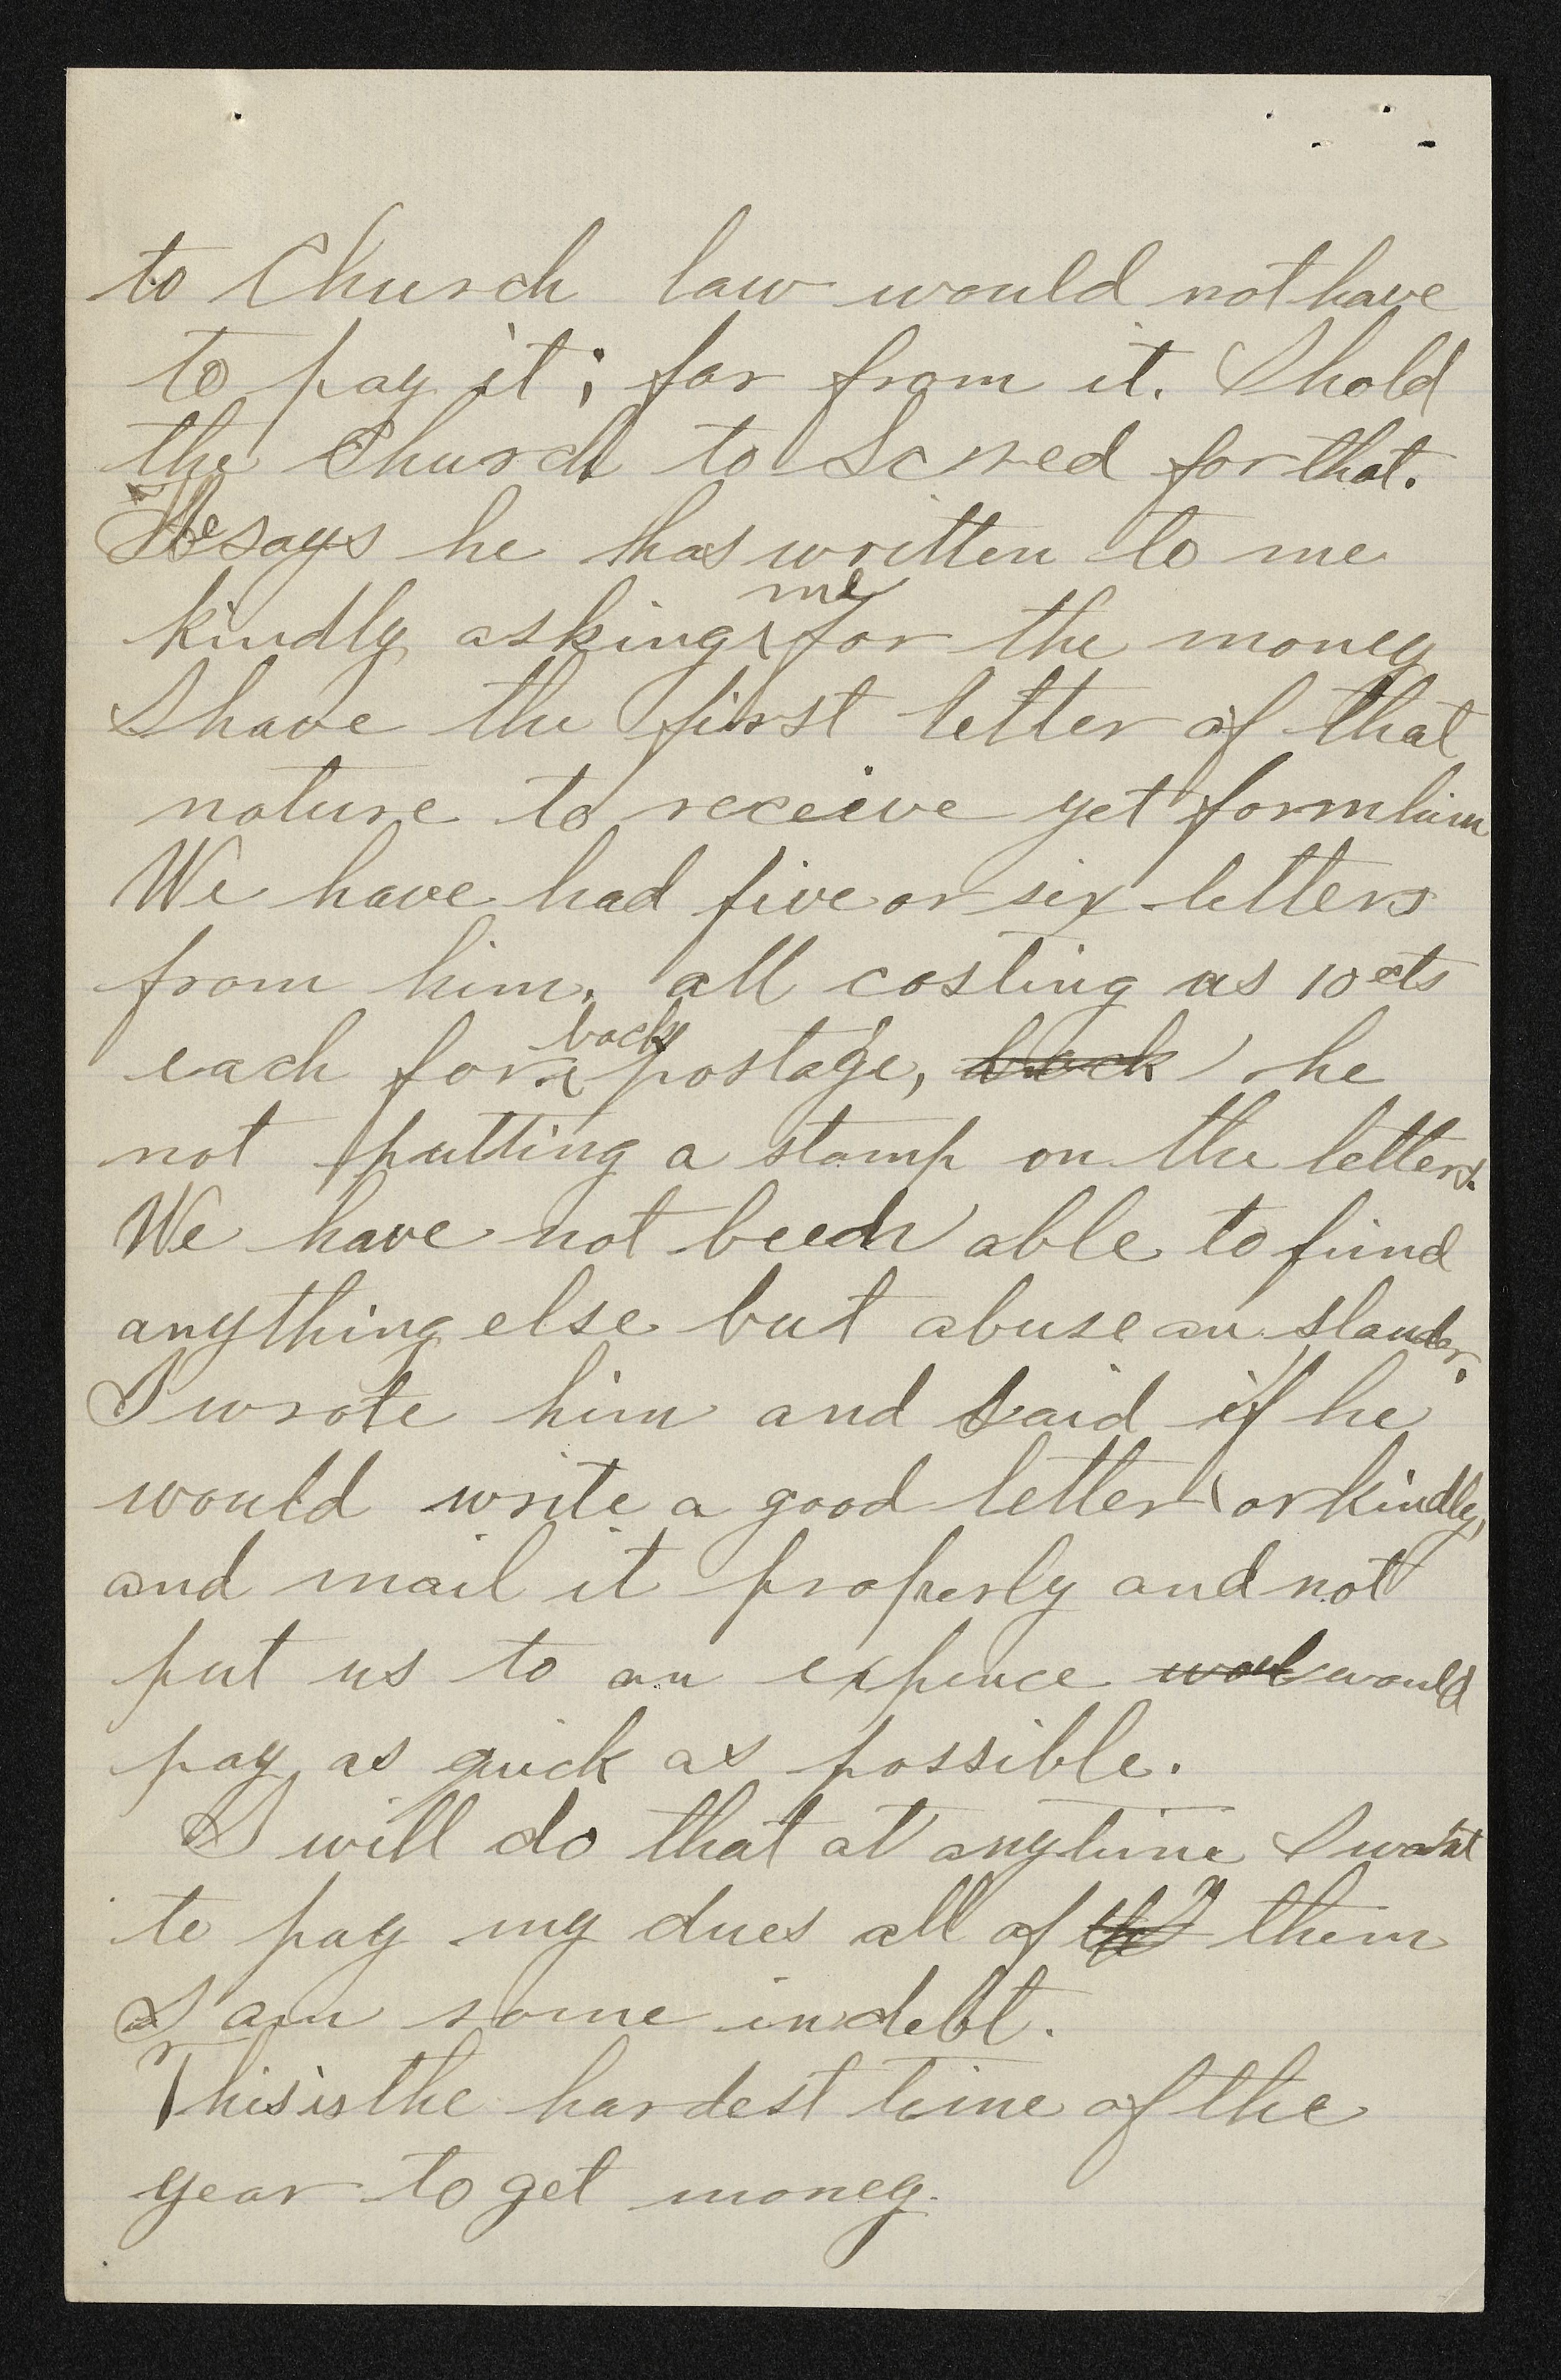 to Church law would not have
to pay it; far from it. I hold
the Church to Scared for that.
He says he has written to me
kindly asking me for the money
I have the first letter of that
nature to receive yet form him
We have had five or six letters
from him, all costing us 10 cts
each for back postage, back he
not putting a stamp on the letters.
We have not been able to find
anything else but abuse an slander.
I wrote him and said if he
would write a good letter or kindly,
and mail it properly and not
put us to an expence would
pay as quick as possible.
I will do that at anytime I want
to pay my dues all of them
I am some in debt.
This is the hardest time of the
year to get money.